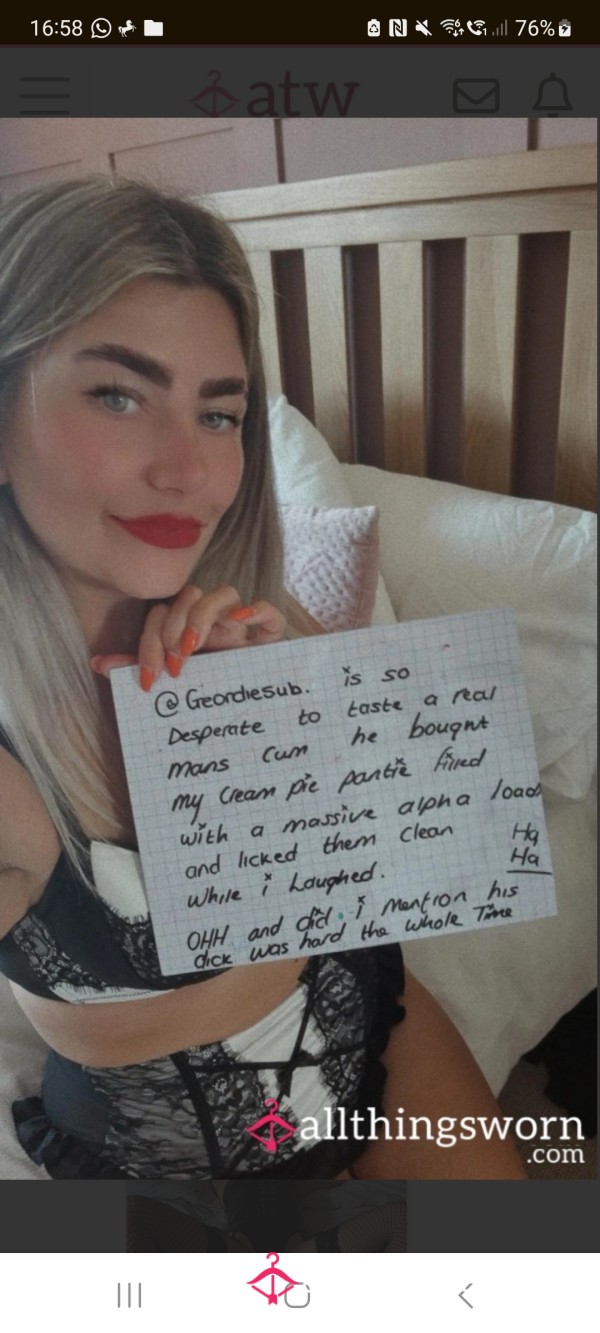 16:58
76%
atw
@Geordiesub. is so
Desperate to taste a real
mans cum he bought
my cream pie pantie filled
with a massive alpha load
and licked them clean
while i Laughed. Ha
Ha
OHH and did i mention his
dick was hard the whole Time
allthingsworn
.com